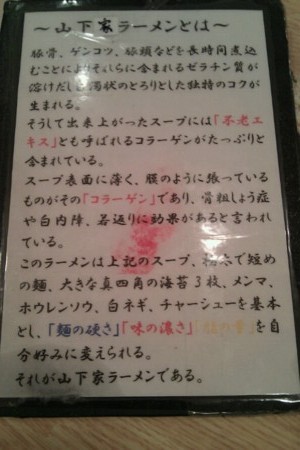 ～山下家ラーメンとは～
豚骨、ゲンコツ、豚頭などを長時間煮込
むことによりそれらに含まれるゼラチン質が
溶けだし白濁状のとろりとした独特のコクが
生まれる。
そうして出来上がったスープには「不老エ
キス」とも呼ばれるコラーゲンがたっぷりと
含まれている。
スープ表面に薄く、膜のように張っている
ものがその「コラーゲン」であり、骨粗しょう症
や白内障、若返りに効果があると言われ
ている。
このラーメンは上記のスープ、極太で短め
の麺、大きな真四角の海苔3枚、メンマ、
ホウレンソウ、白ネギ、チャーシューを基本
とし、「麺の硬さ」「味の濃さ」「脂の量」を自
分好みに変えられる。
それが山下家ラーメンである。